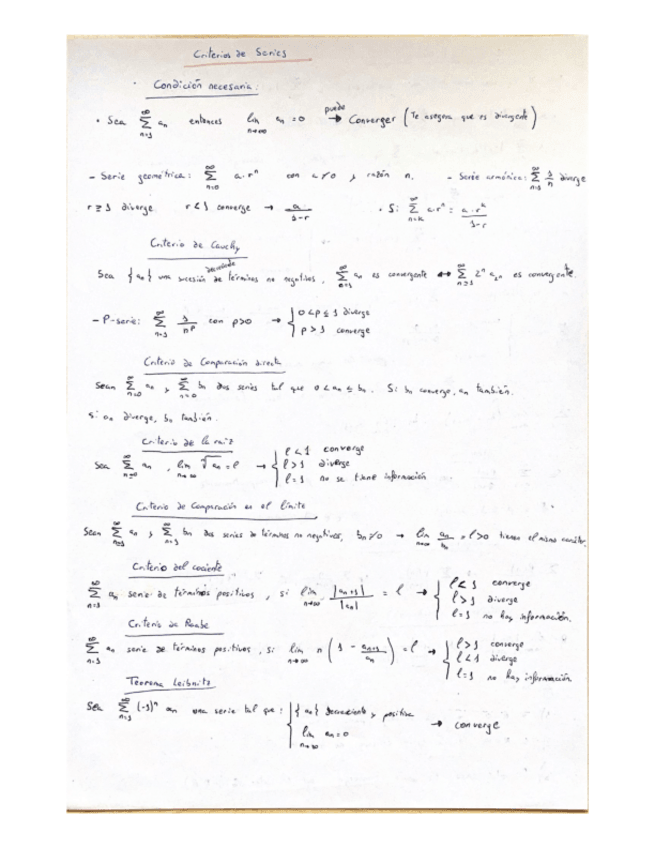 Criterios de Series
Condición necesaria:
• Sea ∑_{n=1}^{∞} a_n entonces lim_{n→∞} a_n = 0 puede → Converger (Te asegura que es divergente)
- Serie geométrica: ∑_{n=0}^{∞} a·r^n con a≠0 y razón r. - Serie armónica: ∑_{n=1}^{∞} 1/n diverge
r ≥ 1 diverge. r < 1 converge → a/(1-r) • Si ∑_{n=k}^{∞} a·r^n = a·r^k/(1-r)
Criterio de Cauchy
Sea {a_n} una sucesión decreciente de términos no negativos, ∑_{n=1}^{∞} a_n es convergente ↔ ∑_{n≥1}^{∞} 2^n a_{2^n} es convergente.
- P-serie: ∑_{n=1}^{∞} 1/n^p con p>0 → { 0<p≤1 diverge
p>1 converge
Criterio de Comparación directa
Sean ∑_{n=0}^{∞} a_n y ∑_{n=0}^{∞} b_n dos series tal que 0 < a_n ≤ b_n. Si b_n converge, a_n también.
Si a_n diverge, b_n también.
Criterio de la raiz
Sea ∑_{n=0}^{∞} a_n, lim_{n→∞} ⁿ√a_n = l → { l<1 converge
l>1 diverge
l=1 no se tiene información
Criterio de Comparación en el límite
Sean ∑_{n=1}^{∞} a_n y ∑_{n=1}^{∞} b_n dos series de términos no negativos, b_n≠0 → lim_{n→∞} a_n/b_n = l>0 tienen el mismo carácter.
Criterio del cociente
∑_{n=1}^{∞} a_n serie de términos positivos, si lim_{n→∞} |a_{n+1}|/|a_n| = l → { l<1 converge
l>1 diverge
l=1 no hay información.
Criterio de Raabe
∑_{n=1}^{∞} a_n serie de términos positivos, si lim_{n→∞} n(1 - a_{n+1}/a_n) = l → { l>1 converge
l<1 diverge
l=1 no hay información
Teorema Leibnitz
Sea ∑_{n=1}^{∞} (-1)^n a_n una serie tal que: { {a_n} decreciente y positiva
lim_{n→∞} a_n = 0 → converge